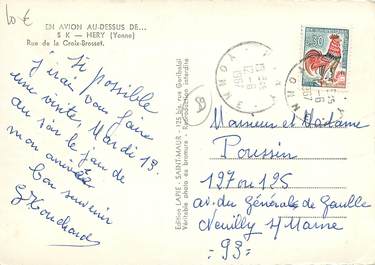 10€
EN AVION AU-DESSUS DE...
S K — HERY (Yonne)
Rue de la Croix-Brosset.
Si possible
j'irai vous faire
une visite Mardi 19
au soir le jour de
mon arrivée
bon souvenir
Edition LAPIE - SAINT-MAUR - 175 bis, rue Garibaldi
Véritable photo au bromure - Reproduction interdite
Monsieur et Madame
Poussin
127 ou 125
av. du Générale de Gaulle
Neuilly s/ Marne
- 93 -